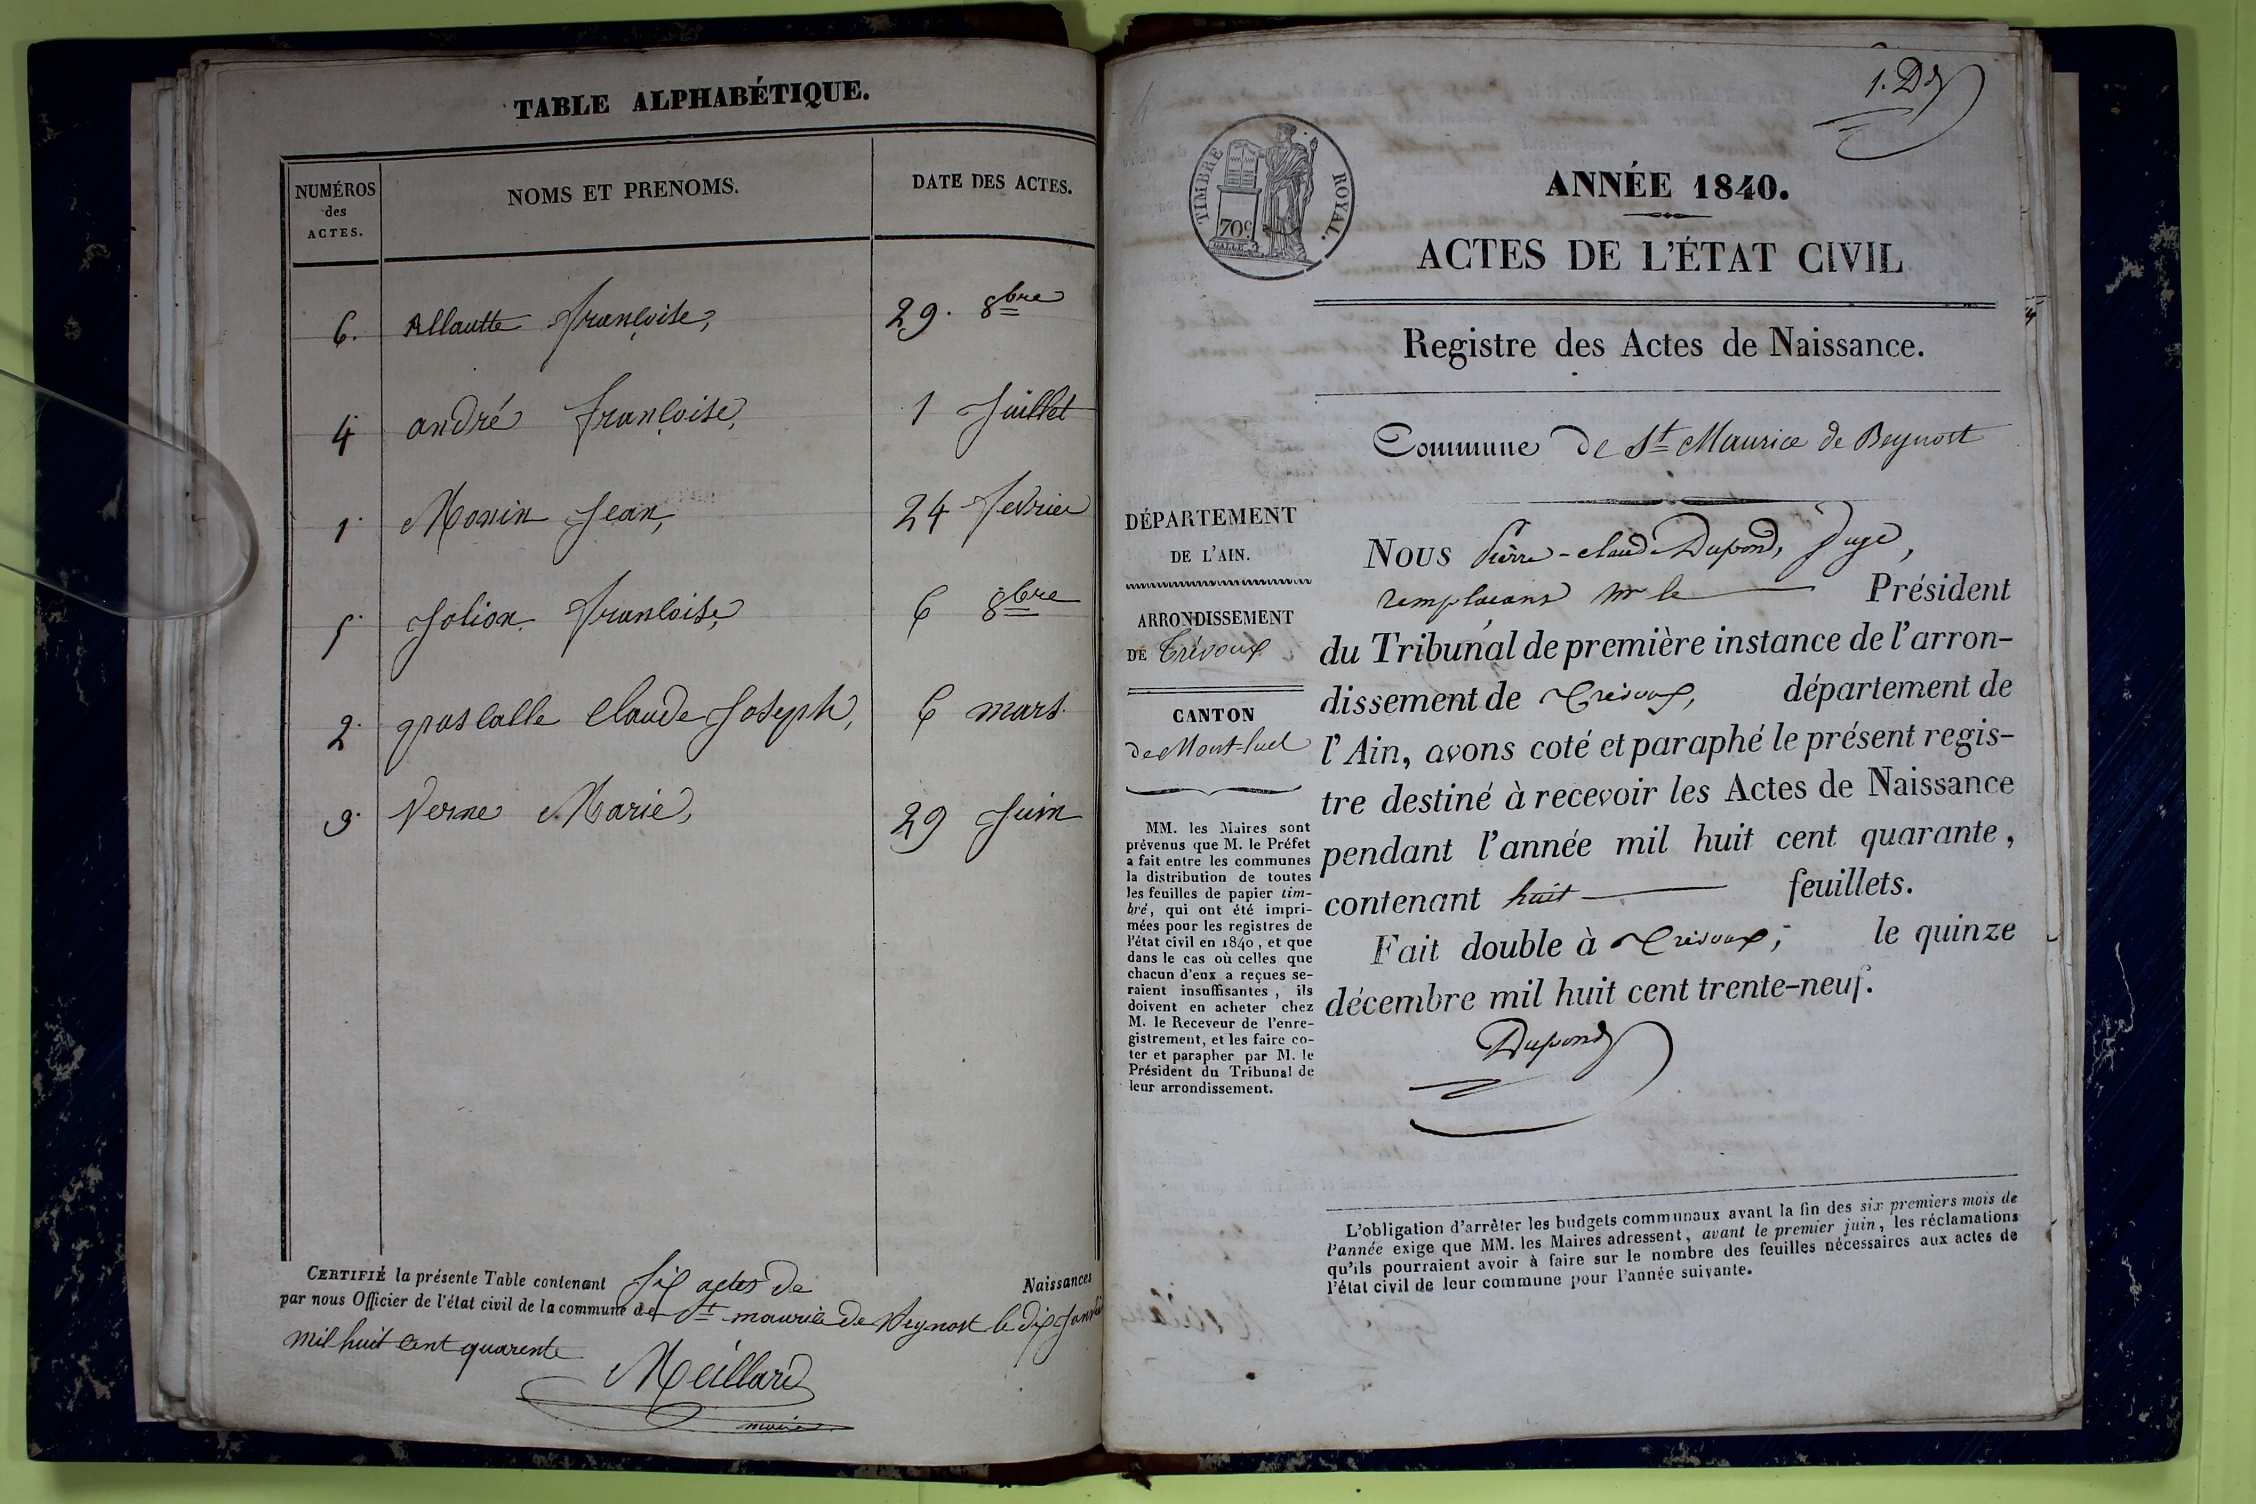 TABLE ALPHABÉTIQUE.
NUMÉROS des ACTES. NOMS ET PRENOMS. DATE DES ACTES.
6. Allautte Françoise, 29. 8bre
4 andré françoise, 1 Juillet
1. Monin Jean, 24 fevrier
5. Jolion françoise, 6 8bre
2. gruscalle Claude Joseph, 6 mars.
3. Verne Marie, 29 Juin
CERTIFIÉ la présente Table contenant Six actes de Naissances
par nous Officier de l'état civil de la commune de St maurice de Beynost le dix Janvier
mil huit cent quarente
Meillard
maire
1. Dd
TIMBRE ROYAL.
70c
ANNÉE 1840.
ACTES DE L'ÉTAT CIVIL
Registre des Actes de Naissance.
Commune de St Maurice de Beynost
DÉPARTEMENT
DE L'AIN.
ARRONDISSEMENT
DE Trévoux
CANTON
de Mont-luel
MM. les Maires sont
prévenus que M. le Préfet
a fait entre les communes
la distribution de toutes
les feuilles de papier tim-
bré, qui ont été impri-
mées pour les registres de
l'état civil en 1840, et que
dans le cas où celles que
chacun d'eux a reçues se-
raient insuffisantes, ils
doivent en acheter chez
M. le Receveur de l'enre-
gistrement, et les faire co-
ter et parapher par M. le
Président du Tribunal de
leur arrondissement.
Nous Pierre-claude Dupond, Juge,
remplaçant Mr le Président
du Tribunal de première instance de l'arron-
dissement de Trévoux, département de
l'Ain, avons coté et paraphé le présent regis-
tre destiné à recevoir les Actes de Naissance
pendant l'année mil huit cent quarante,
contenant huit feuillets.
Fait double à Trévoux, le quinze
décembre mil huit cent trente-neuf.
Dupond
L'obligation d'arrêter les budgets communaux avant la fin des six premiers mois de
l'année exige que MM. les Maires adressent, avant le premier juin, les réclamations
qu'ils pourraient avoir à faire sur le nombre des feuilles nécessaires aux actes de
l'état civil de leur commune pour l'année suivante.